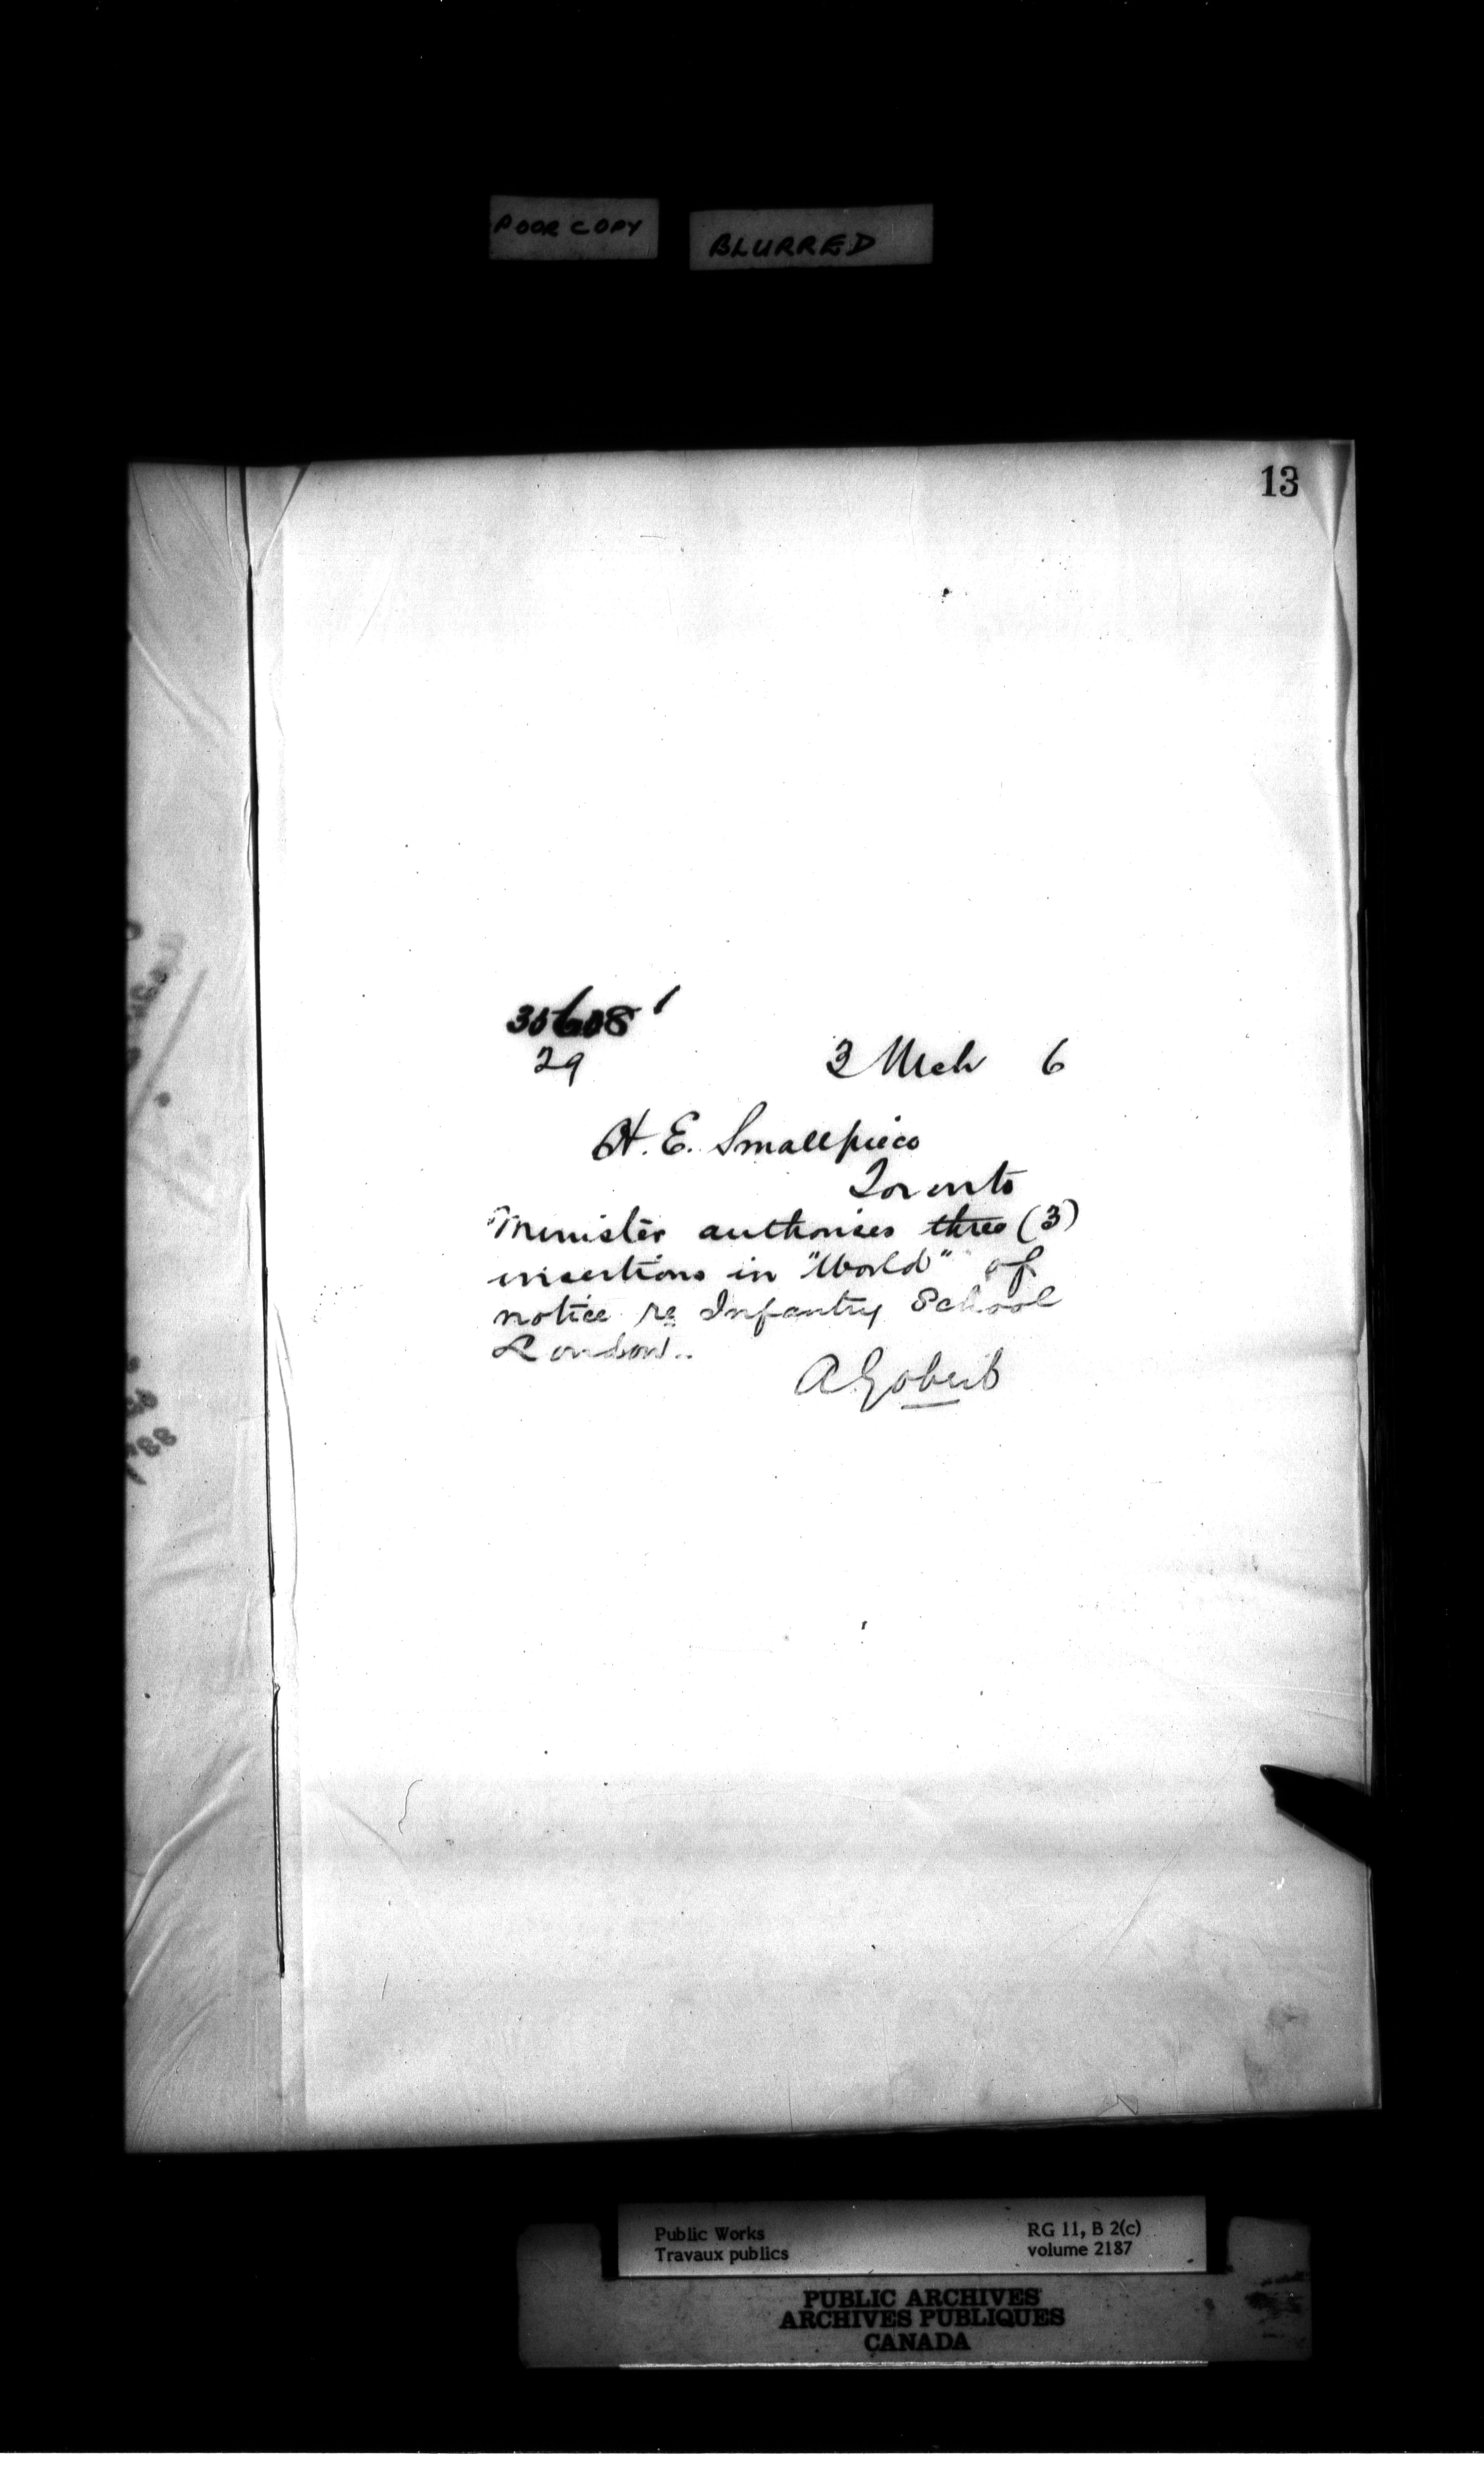 POOR COPY
BLURRED
13
35608 1
29
3 Mch 6
H. E. Smallpiece
Toronto
Minister authorises three (3)
insertions in "World" of
notice re Infantry School
London..
A Gobeil
Public Works
Travaux publics
RG 11, B 2(c)
volume 2187
PUBLIC ARCHIVES
ARCHIVES PUBLIQUES
CANADA